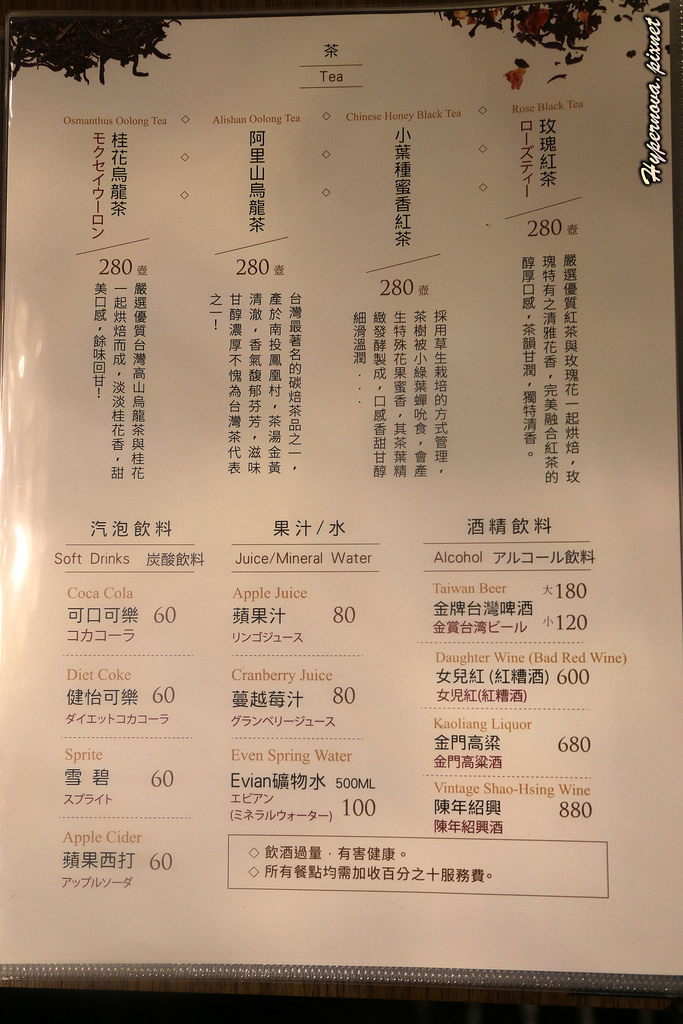 Hypernova.pixnet
茶
Tea
Osmanthus Oolong Tea
桂花烏龍茶
モクセイウーロン
280 壺
嚴選優質台灣高山烏龍茶與桂花
一起烘焙而成，淡淡桂花香，甜
美口感，餘味回甘！
Alishan Oolong Tea
阿里山烏龍茶
280 壺
台灣最著名的碳焙茶品之一，
產於南投鳳凰村，茶湯金黃
清澈，香氣馥郁芬芳，滋味
甘醇濃厚不愧為台灣茶代表
之一！
Chinese Honey Black Tea
小葉種蜜香紅茶
280 壺
採用草生栽培的方式管理，
茶樹被小綠葉蟬吮食，會產
生特殊花果蜜香，其茶葉精
緻發酵製成，口感香甜甘醇
細滑溫潤...
Rose Black Tea
玫瑰紅茶
ローズティー
280 壺
嚴選優質紅茶與玫瑰花一起烘焙，玫
瑰特有之清雅花香，完美融合紅茶的
醇厚口感，茶韻甘潤，獨特清香。
汽泡飲料
Soft Drinks 炭酸飲料
Coca Cola
可口可樂 60
コカコーラ
Diet Coke
健怡可樂 60
ダイエットコカコーラ
Sprite
雪碧 60
スプライト
Apple Cider
蘋果西打 60
アップルソーダ
果汁/水
Juice/Mineral Water
Apple Juice
蘋果汁 80
リンゴジュース
Cranberry Juice
蔓越莓汁 80
グランベリージュース
Even Spring Water
Evian礦物水 500ML
エビアン
(ミネラルウォーター) 100
酒精飲料
Alcohol アルコール飲料
Taiwan Beer 大180
金牌台灣啤酒
金賞台湾ビール 小120
Daughter Wine (Bad Red Wine)
女兒紅 (紅糟酒) 600
女児紅(紅糟酒)
Kaoliang Liquor
金門高粱 680
金門高粱酒
Vintage Shao-Hsing Wine
陳年紹興 880
陳年紹興酒
◇ 飲酒過量．有害健康。
◇ 所有餐點均需加收百分之十服務費。